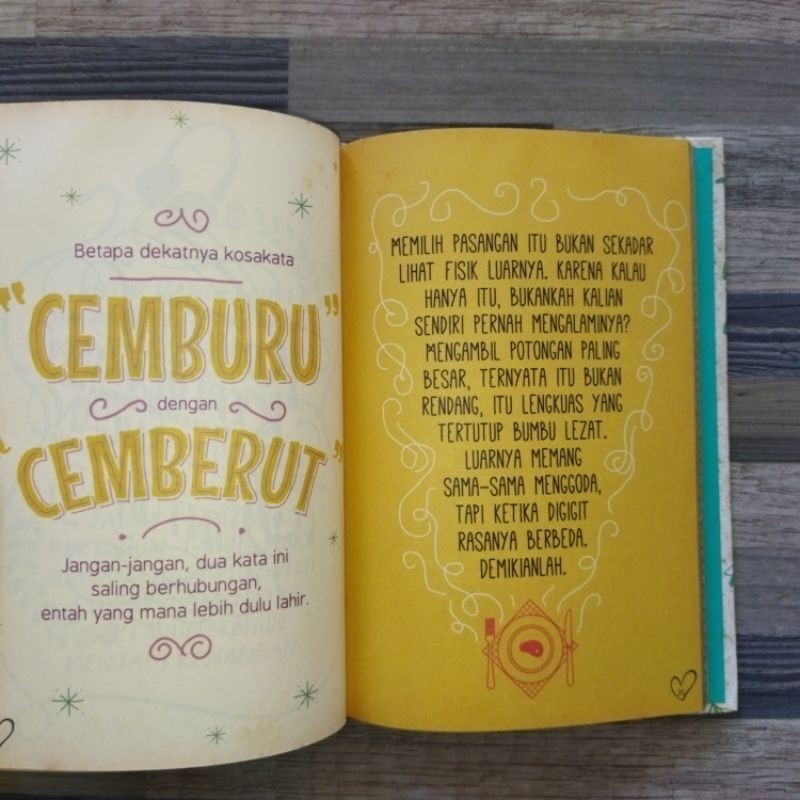 Betapa dekatnya kosakata
"CEMBURU"
dengan
"CEMBERUT"
Jangan-jangan, dua kata ini
saling berhubungan,
entah yang mana lebih dulu lahir.
MEMILIH PASANGAN ITU BUKAN SEKADAR
LIHAT FISIK LUARNYA. KARENA KALAU
HANYA ITU, BUKANKAH KALIAN
SENDIRI PERNAH MENGALAMINYA?
MENGAMBIL POTONGAN PALING
BESAR, TERNYATA ITU BUKAN
RENDANG, ITU LENGKUAS YANG
TERTUTUP BUMBU LEZAT.
LUARNYA MEMANG
SAMA-SAMA MENGGODA,
TAPI KETIKA DIGIGIT
RASANYA BERBEDA.
DEMIKIANLAH.